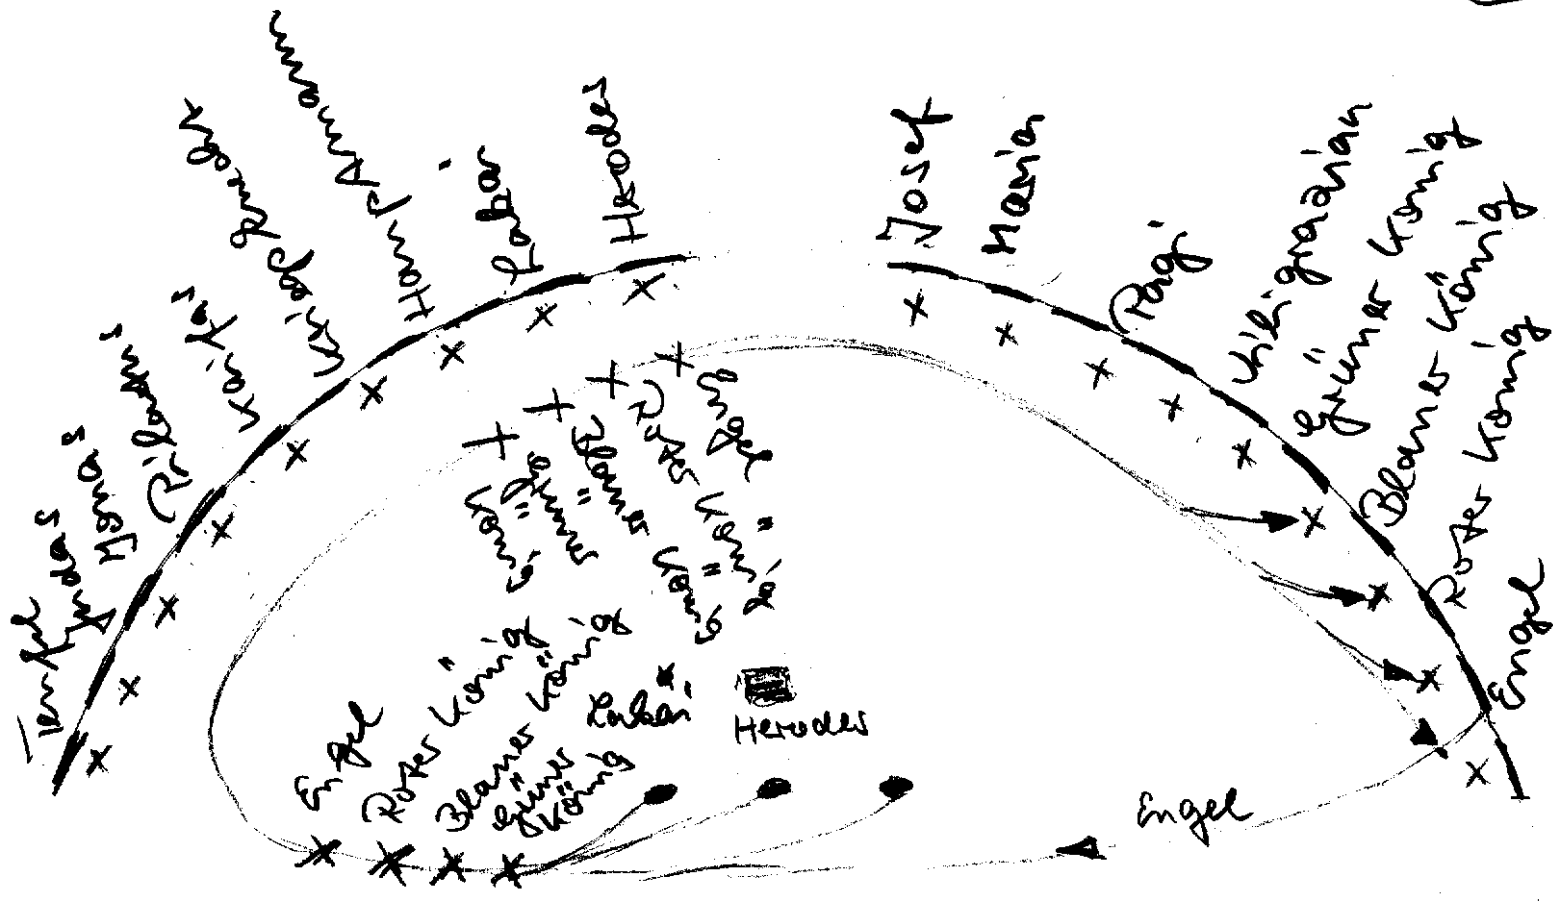 Teufel
Judas
Pilatus
Kaifas
Kriegsknecht
Hauptmann
Lakai
Herodes
Josef
Maria
Pagi
Kiligrazian
Grüner König
Blauer König
Roter König
Engel
Grüner König
Blauer König
Roter König
Engel
Engel
Roter König
Blauer König
Grüner König
Lakai
Herodes
Engel